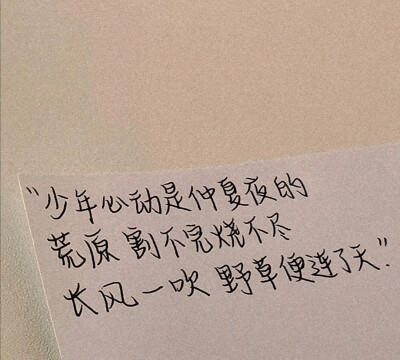 “少年心动是仲夏夜的
荒原 割不完烧不尽
长风一吹 野草便连了天”.